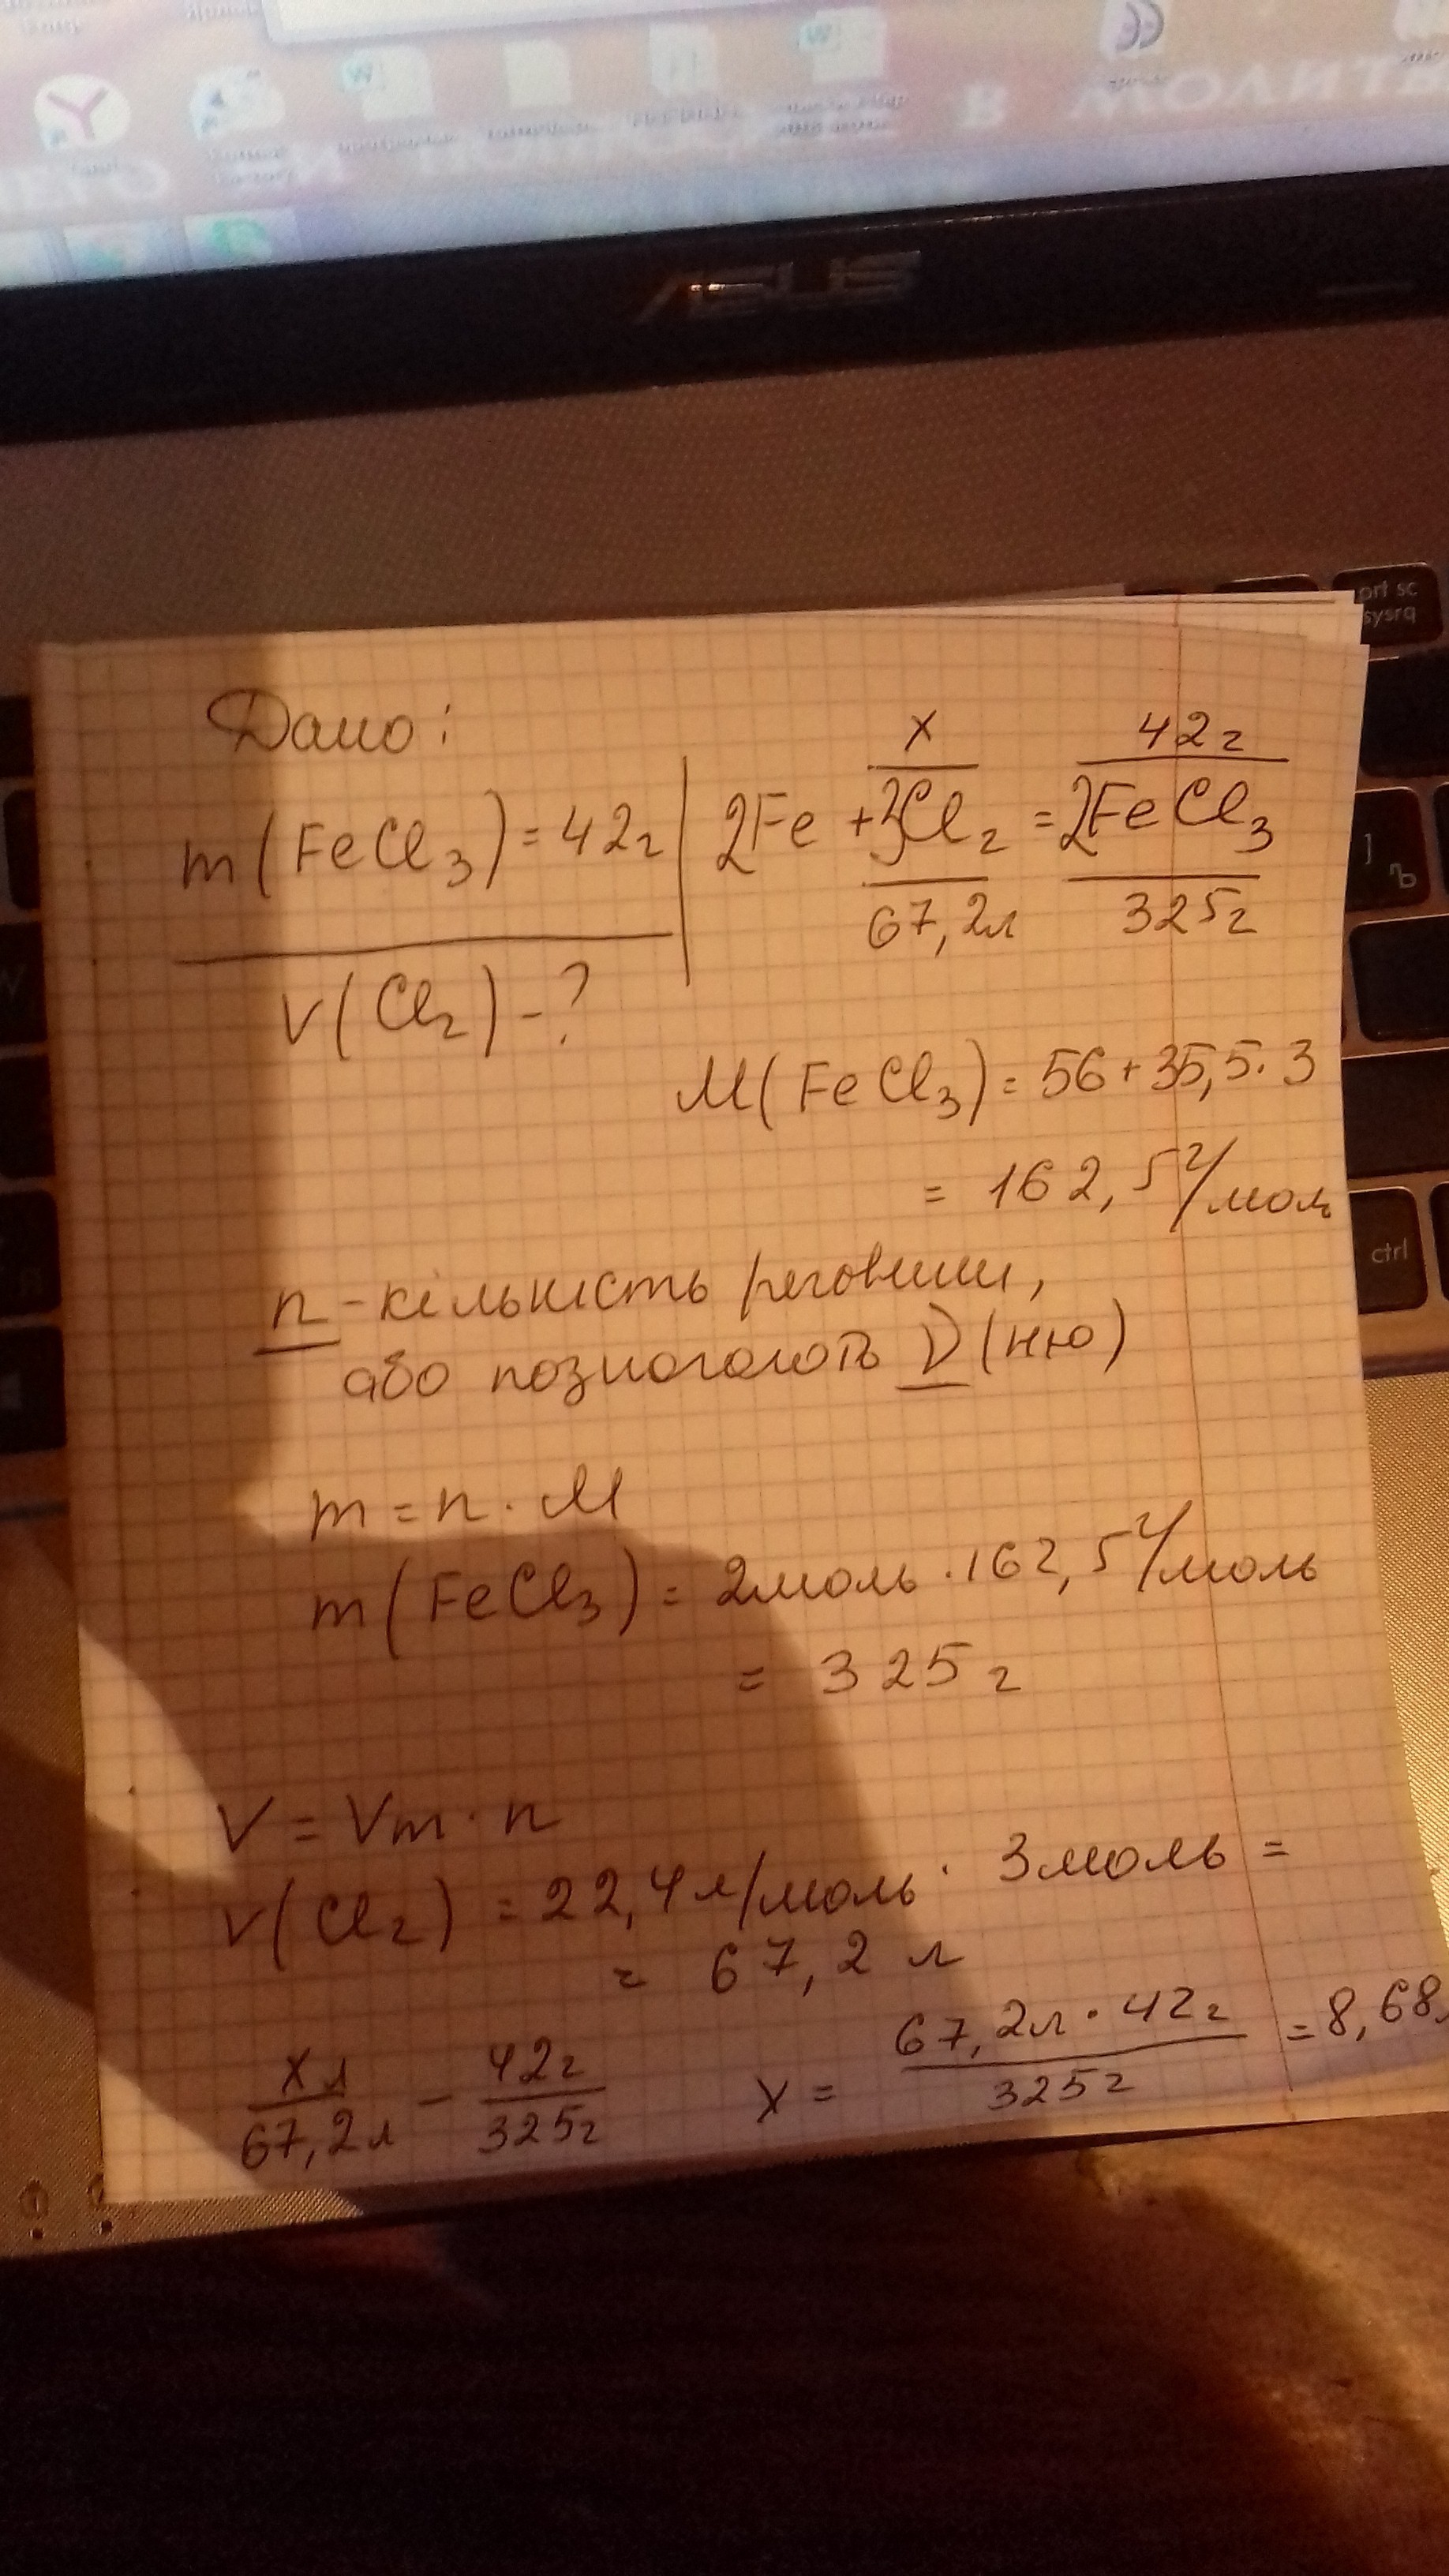 ASUS
prt sc
sysrq
ctrl
Ъ
Дано:
x
42г
m(FeCl₃)=42г
2Fe + 3Cl₂ = 2FeCl₃
67,2л
325г
V(Cl₂)-?
M(FeCl₃)=56+35,5·3
= 162,5 г/моль
n - кількість речовини,
або позначають ν (ню)
m = n · M
m(FeCl₃) = 2моль · 162,5 г/моль
= 325г
V = Vm · n
V(Cl₂) = 22,4 л/моль · 3моль =
= 67,2 л
xл/67,2л - 42г/325г
x = 67,2л · 42г/325г = 8,68л